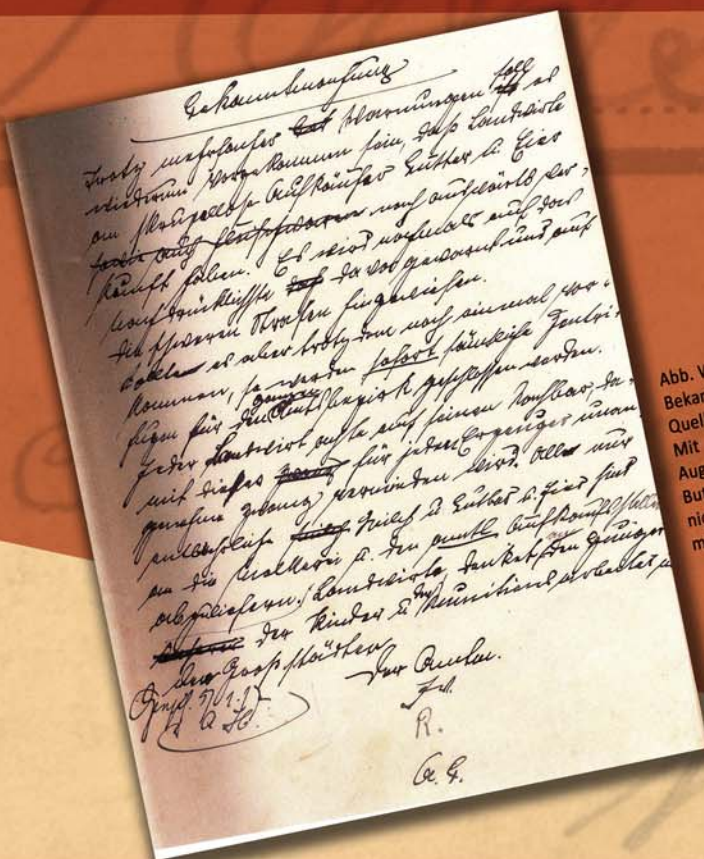 Bekanntmachung
Trotz mehrfacher Warnungen soll es
wiederum vorgekommen sein, daß Landwirte
an skrupellose Aufkäufer Butter u. Eier
sowie auch Fleischwaren nach auswärts ver-
kauft haben. Es wird nochmals auf das
nachdrücklichste davor gewarnt und auf
die schweren Strafen hingewiesen.
Sollte es aber trotzdem noch einmal vor-
kommen, so werden sofort sämtliche Zentri-
fugen für den ganzen Amtsbezirk geschlossen werden.
Jeder Landwirt achte auf seinen Nachbar, da-
mit dieser für jeden Erzeuger unan
genehme Zwang vermieden wird. Alle nur
entbehrliche Milch u. Butter u. Eier sind
an die Molkerei u. den amtl. Aufkaufstellen
abzuliefern. Landwirte, denket an den Hunger
der Kinder u. der Munitionsarbeiter in
den Großstädten.
Der Amtm.
I.V.
R.
A. G.
Abb. V
Bekan
Quell
Mit
Aug
But
nic
m